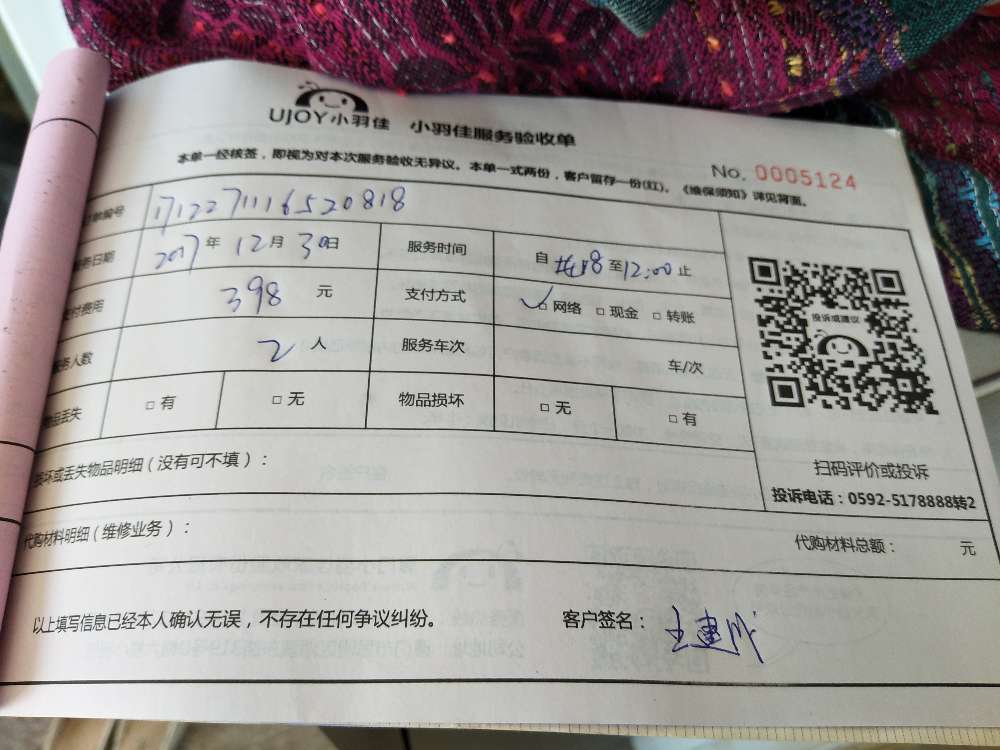 UJOY小羽佳 小羽佳服务验收单
本单一经核签，即视为对本次服务验收无异议。本单一式两份，客户留存一份(红)。《维保须知》详见背面。
No. 0005124
编号 1712271116520818
日期 2017年 12月 30日 服务时间 自 至12:00止
费用 398 元 支付方式 ☑网络 □现金 □转账
服务人数 2 人 服务车次 车/次
物品丢失 □有 □无 物品损坏 □无 □有
投诉或建议
扫码评价或投诉
投诉电话：0592-5178888转2
损坏或丢失物品明细（没有可不填）：
代购材料明细（维修业务）： 代购材料总额： 元
以上填写信息已经本人确认无误，不存在任何争议纠纷。 客户签名：